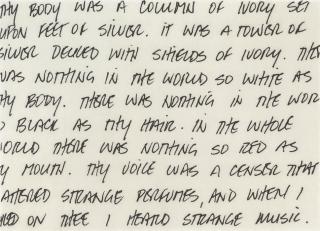 THY BODY WAS A COLUMN OF IVORY SET
UPON FEET OF SILVER. IT WAS A TOWER OF
SILVER DECKED WITH SHIELDS OF IVORY. THER
WAS NOTHING IN THE WORLD SO WHITE AS
THY BODY. THERE WAS NOTHING IN THE WOR
O BLACK AS THY HAIR. IN THE WHOLE
WORLD THERE WAS NOTHING SO RED AS
Y MOUTH. THY VOICE WAS A CENSER THAT
ATTERED STRANGE PERFUMES, AND WHEN I
KED ON THEE I HEARD STRANGE MUSIC.